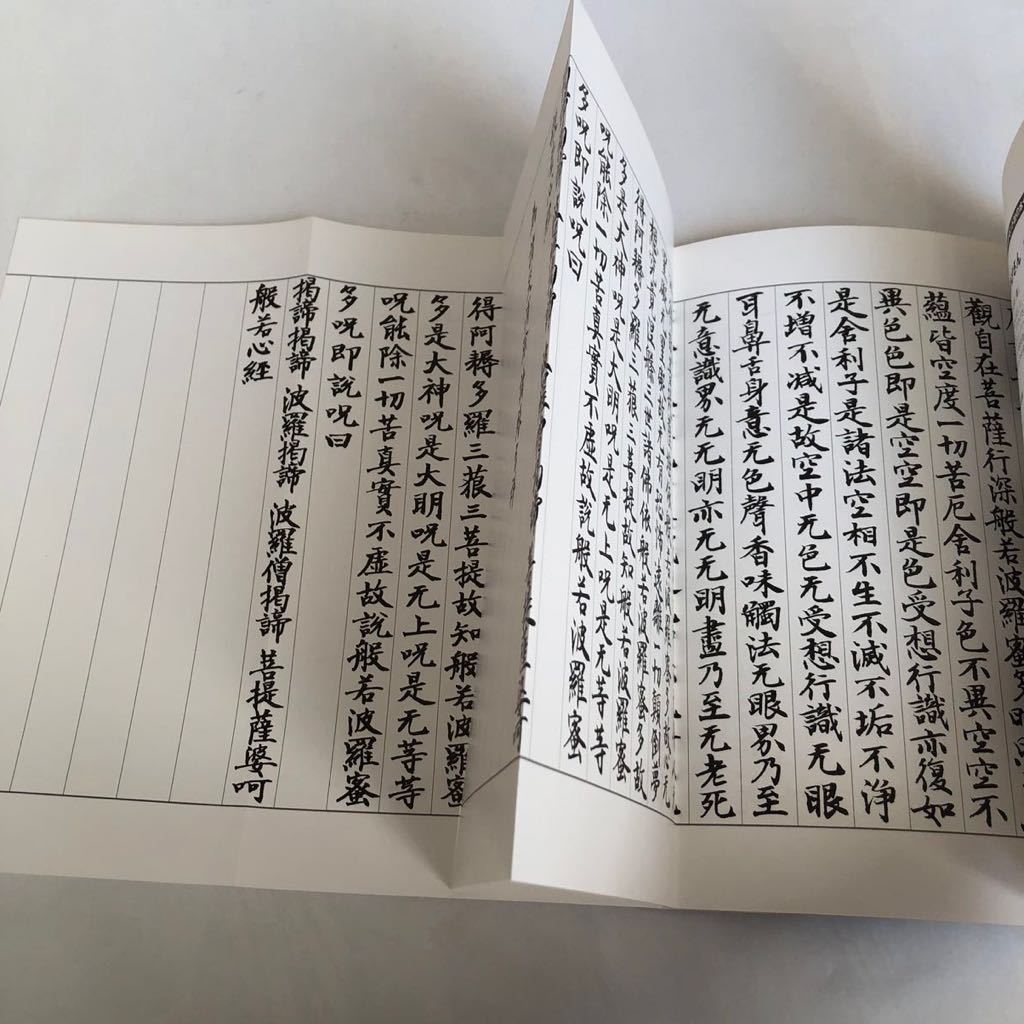 觀自在菩薩行深般若波羅蜜多時
蘊皆空度一切苦厄舍利子色不異空空不
異色色即是空空即是色受想行識亦復如
是舍利子是諸法空相不生不滅不垢不淨
不增不減是故空中无色无受想行識无眼
耳鼻舌身意无色聲香味觸法无眼界乃至
无意識界无无明亦无无明盡乃至无老死
得阿耨多羅三藐三菩提故知般若波羅蜜
多是大神呪是大明呪是无上呪是无等等
呪能除一切苦真實不虛故說般若波羅蜜
多呪即說呪曰
得阿耨多羅三藐三菩提故知般若波羅蜜
多是大神呪是大明呪是无上呪是无等等
呪能除一切苦真實不虛故說般若波羅蜜
多呪即說呪曰
揭諦揭諦 波羅揭諦 波羅僧揭諦 菩提薩婆呵
般若心經